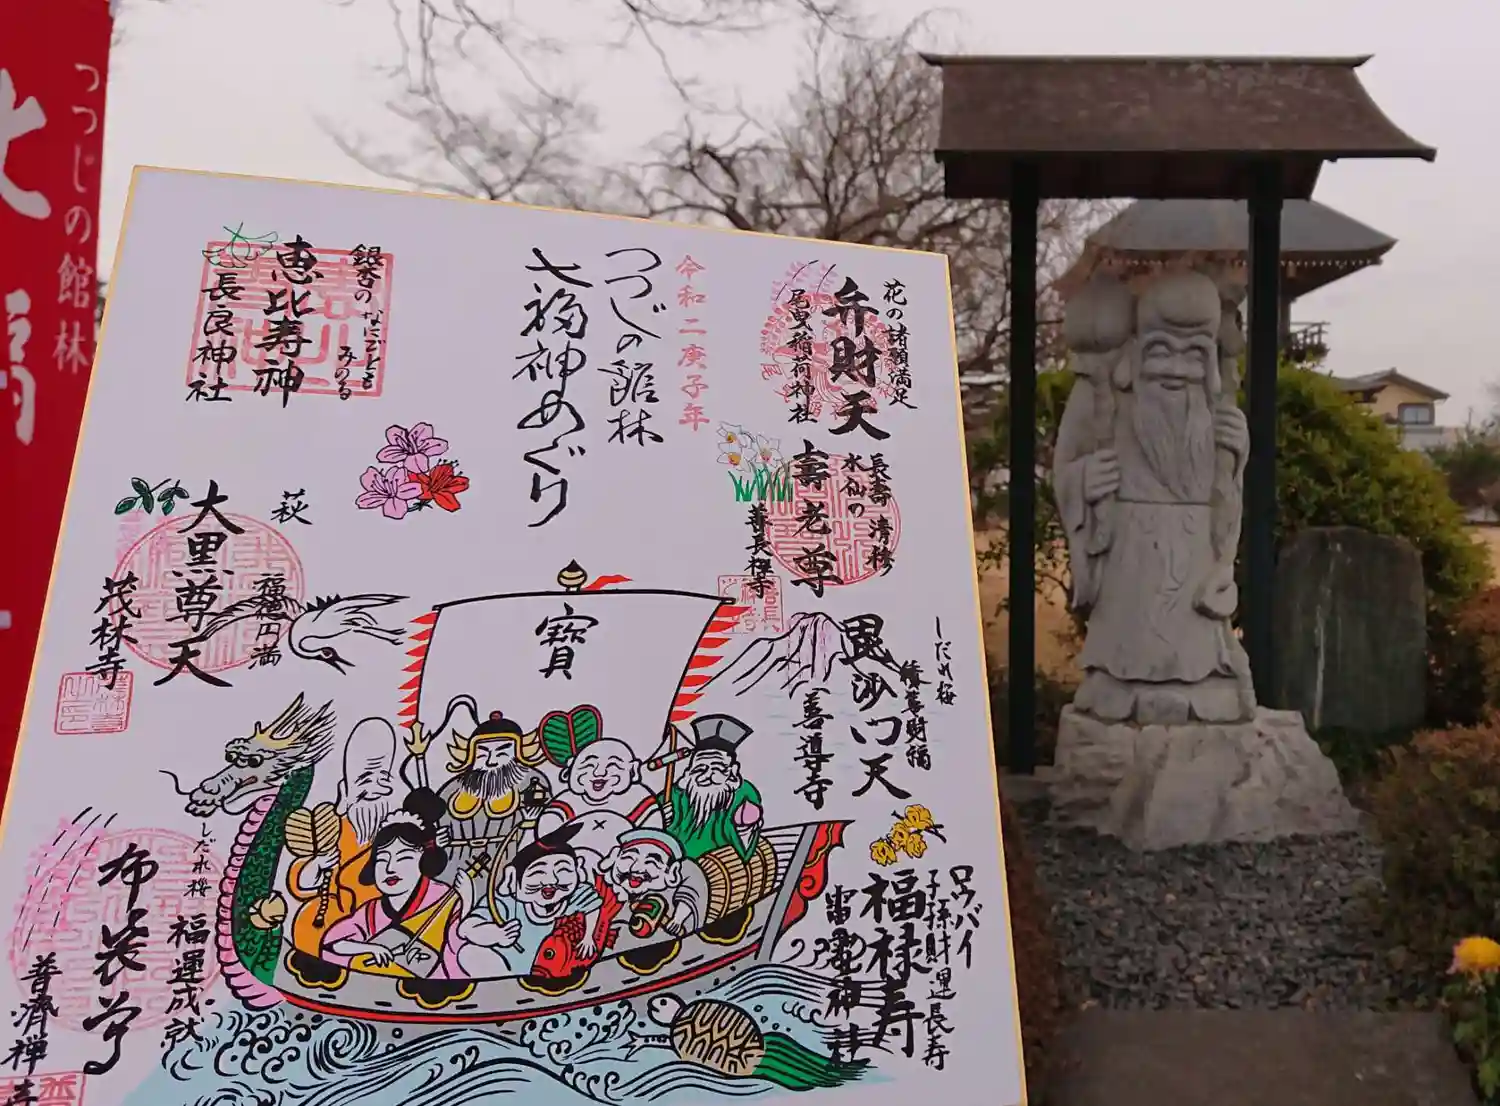 つつじの館林
七福
令和二庚子年
つつじの館林
七福神めぐり
花の諸願満足
弁財天
尾曳稲荷神社
長寿 清穆
水仙の
壽老尊
善長禅寺
しだれ桜
積善財福
毘沙門天
善導寺
ロウバイ
子孫財運長寿
福禄寿
雷電神社
銀杏の なにごとも みのる
恵比寿神
長良神社
萩
福徳円満
大黒尊天
茂林寺
しだれ桜
福運成就
布袋尊
普済禅寺
寶